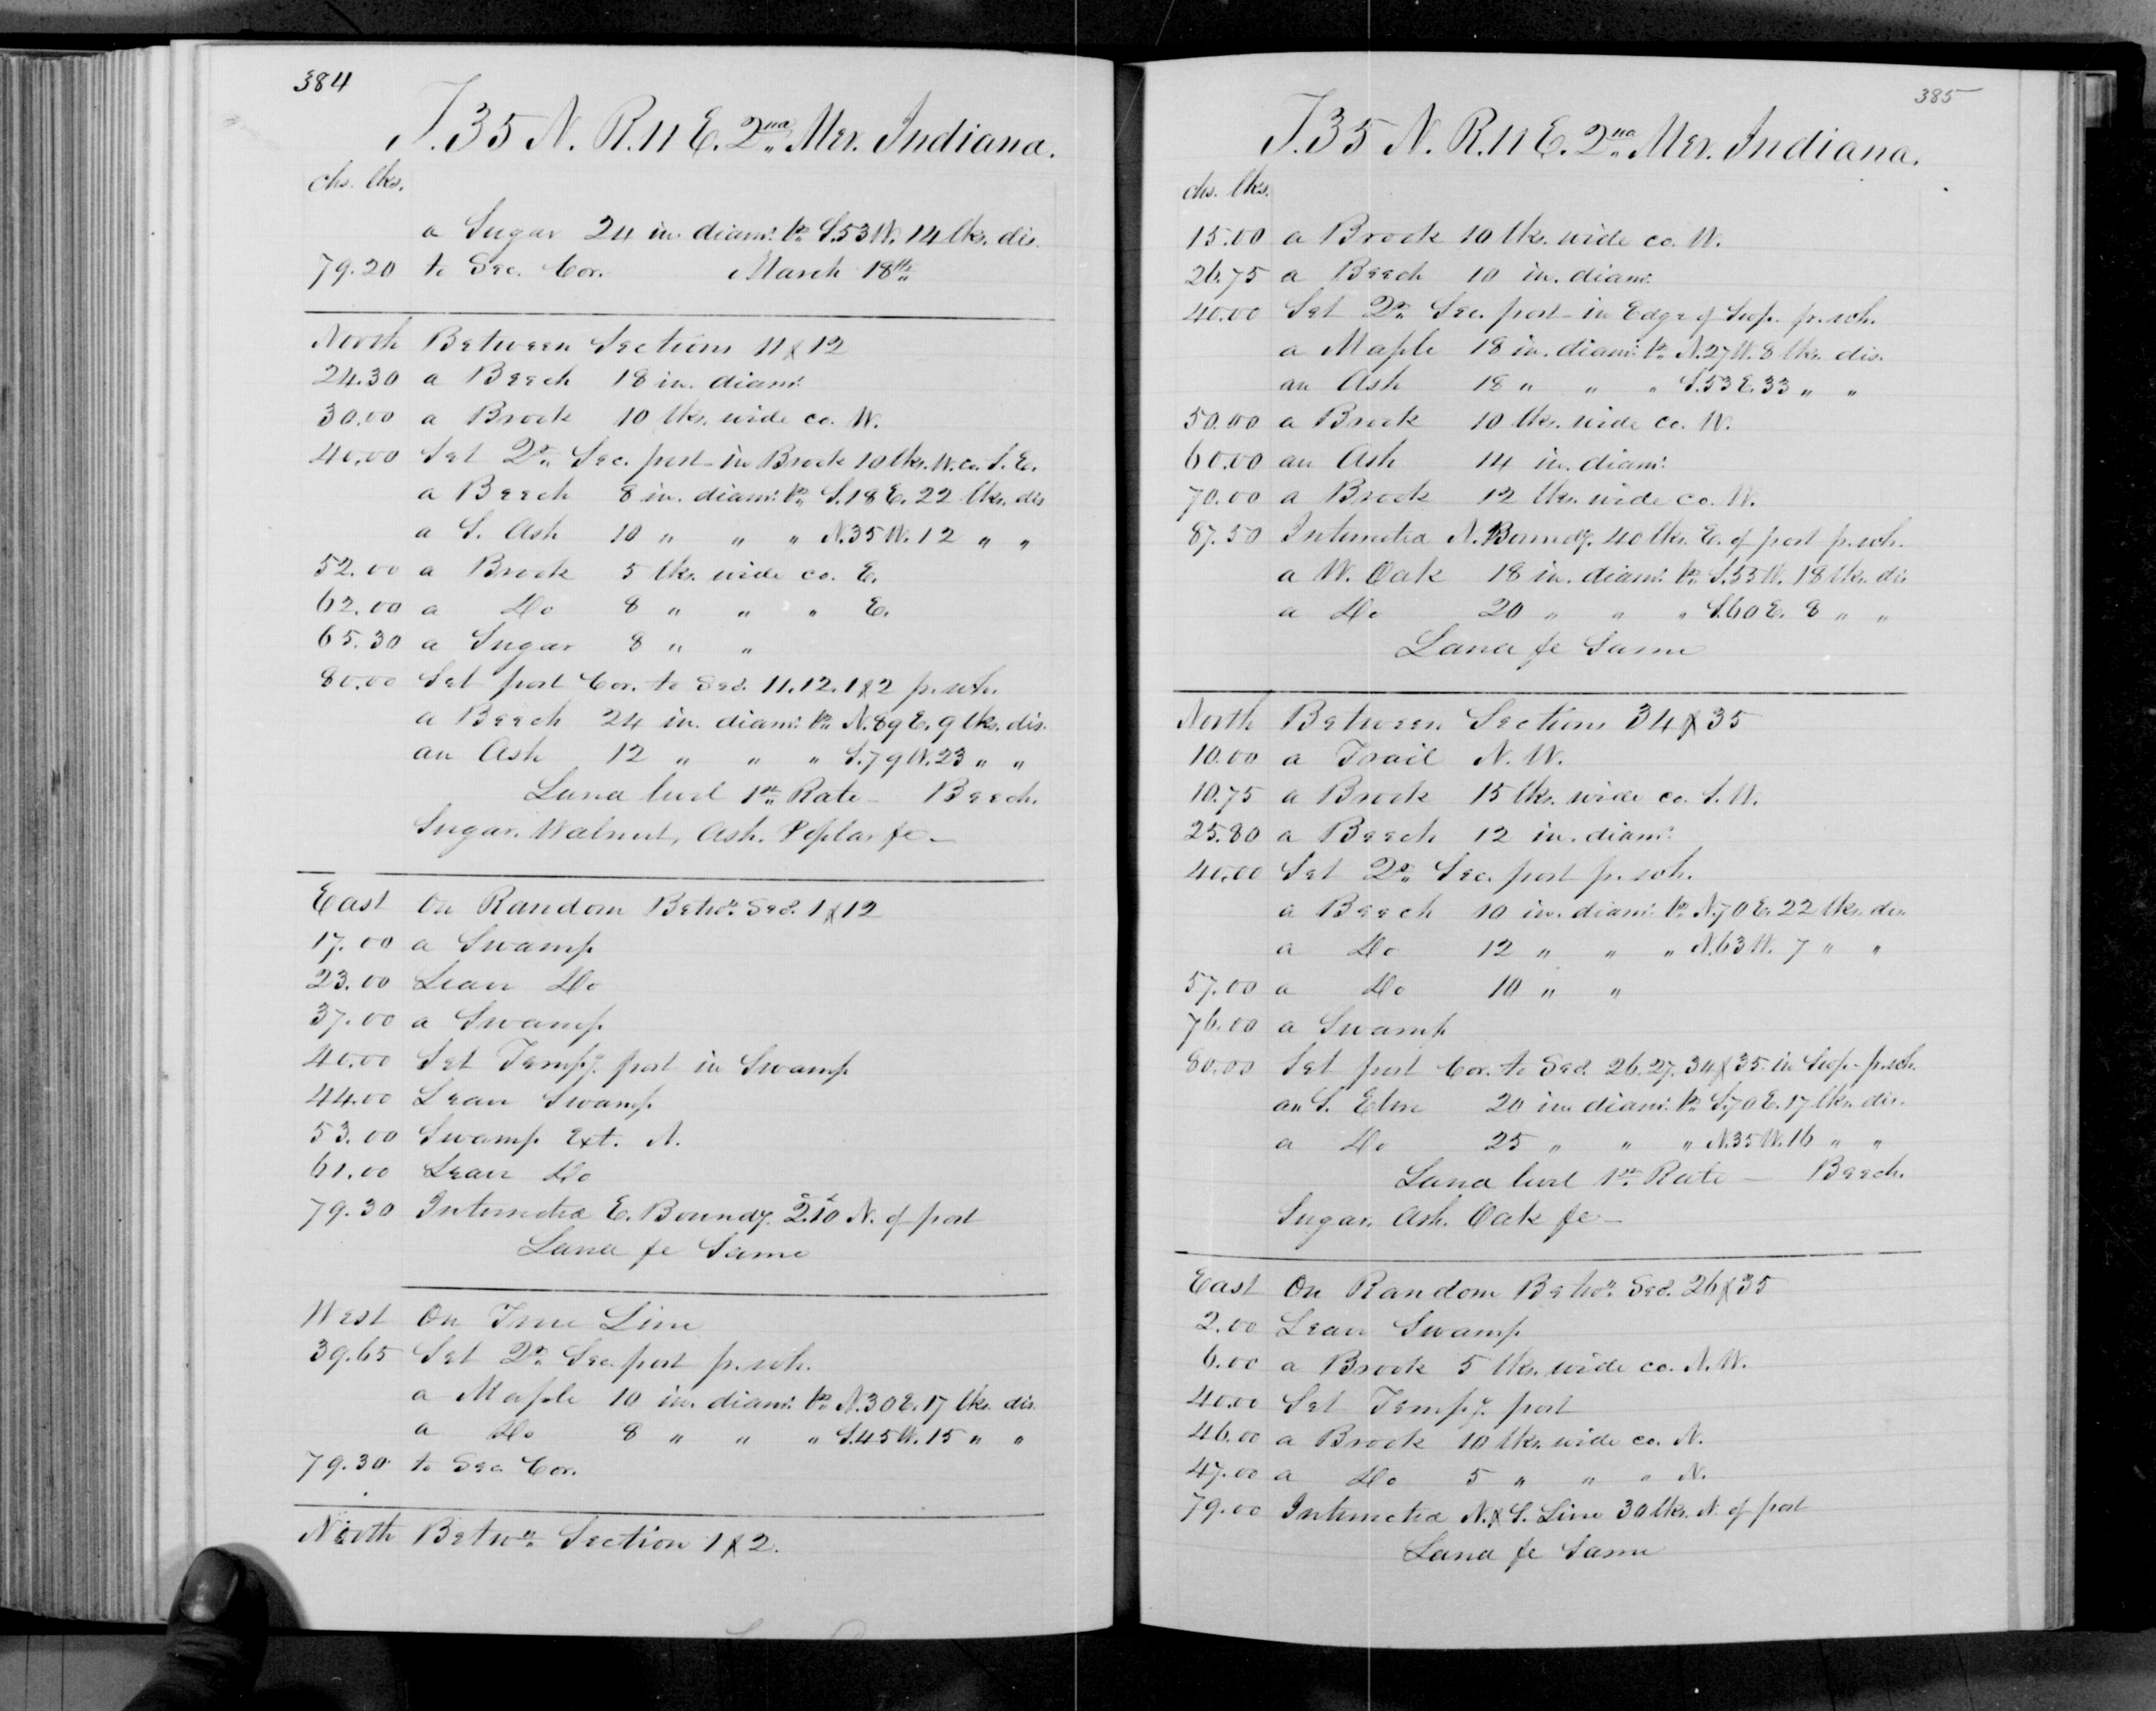 384
T. 35 N. R. 11 E. 2nd Mer. Indiana.
chs. lks.
a Sugar 24 in. diam: brs S. 53 W. 14 lks. dis.
79.20 to Sec. Cor. March 18th
North Between Sections 11 & 12
24.30 a Beech 18 in. diam:
30.00 a Brook 10 lks. wide co. W.
40.00 Set Qr. Sec. post in Brook 10 lks. W. co. S. E.
a Beech 8 in. diam: br. S. 18 E. 22 lks. dis
a S. Ash 10 " " " N. 35 W. 12 " "
52.00 a Brook 5 lks. wide co. E.
62.00 a Do 8 " " " E.
65.30 a Sugar 8 " "
80.00 Set post Cor. to Secs. 11. 12. 1 & 2 fr. wh.
a Beech 24 in. diam: br. N. 89 E. 9 lks. dis.
an Ash 12 " " " S. 79 W. 23 " "
Land level 1st Rate — Beech.
Sugar, Walnut, Ash. Poplar &c —
East On Random Betwn. Secs. 1 & 12
17.00 a Swamp
23.00 Leave Do
37.00 a Swamp
40.00 Set Tempy. post in Swamp
44.00 Leave Swamp
53.00 Swamp Ext. N.
61.00 Leave Do
79.30 Intersected E. Boundy. 2.10 N. of post
Land &c Same
West On True Line
39.65 Set Qr. Sec. post fr. wh.
a Maple 10 in. diam: br. N. 30 E. 17 lks. dis.
a Do 8 " " " S. 45 W. 15 " "
79.30 to Sec. Cor.
North Betwn. Section 1 & 2.
385
T. 35 N. R. 11 E. 2nd Mer. Indiana.
chs. lks.
15.00 a Brook 10 lks. wide co. W.
26.75 a Beech 10 in. diam:
40.00 Set Qr. Sec. post in Edge of Swp. fr. wh.
a Maple 18 in. diam: br. N. 27 W. 8 lks. dis.
an Ash 18 " " " S. 53 E. 33 " "
50.00 a Brook 10 lks. wide co. W.
60.00 an Ash 14 in. diam:
70.00 a Brook 12 lks. wide co. W.
87.50 Intersected N. Boundy. 40 lks. E. of post fr. wh.
a W. Oak 18 in. diam: br. S. 55 W. 18 lks. dis
a Do 20 " " " S. 60 E. 8 " "
Land &c Same
North Between Sections 34 & 35
10.00 a Trail N. W.
10.75 a Brook 15 lks. wide co. S. W.
25.80 a Beech 12 in. diam:
40.00 Set Qr. Sec. post fr. wh.
a Beech 10 in. diam: br. N. 70 E. 22 lks. dis.
a Do 12 " " " N. 63 W. 7 " "
57.00 a Do 10 " "
76.00 a Swamp
80.00 Set post Cor. to Secs. 26. 27. 34 & 35 in Swp. fr. wh.
an S. Elm 20 in. diam: br. S. 70 E. 17 lks. dis.
a Do 25 " " " N. 35 W. 16 " "
Land level 1st Rate — Beech.
Sugar. Ash. Oak &c —
East On Random Betwn. Secs. 26 & 35
2.00 Leave Swamp
6.00 a Brook 5 lks. wide co. N. W.
40.00 Set Tempy. post
46.00 a Brook 10 lks. wide co. N.
47.00 a Do 5 " " " N.
79.00 Intersected N. & S. Line 30 lks. N. of post
Land &c Same